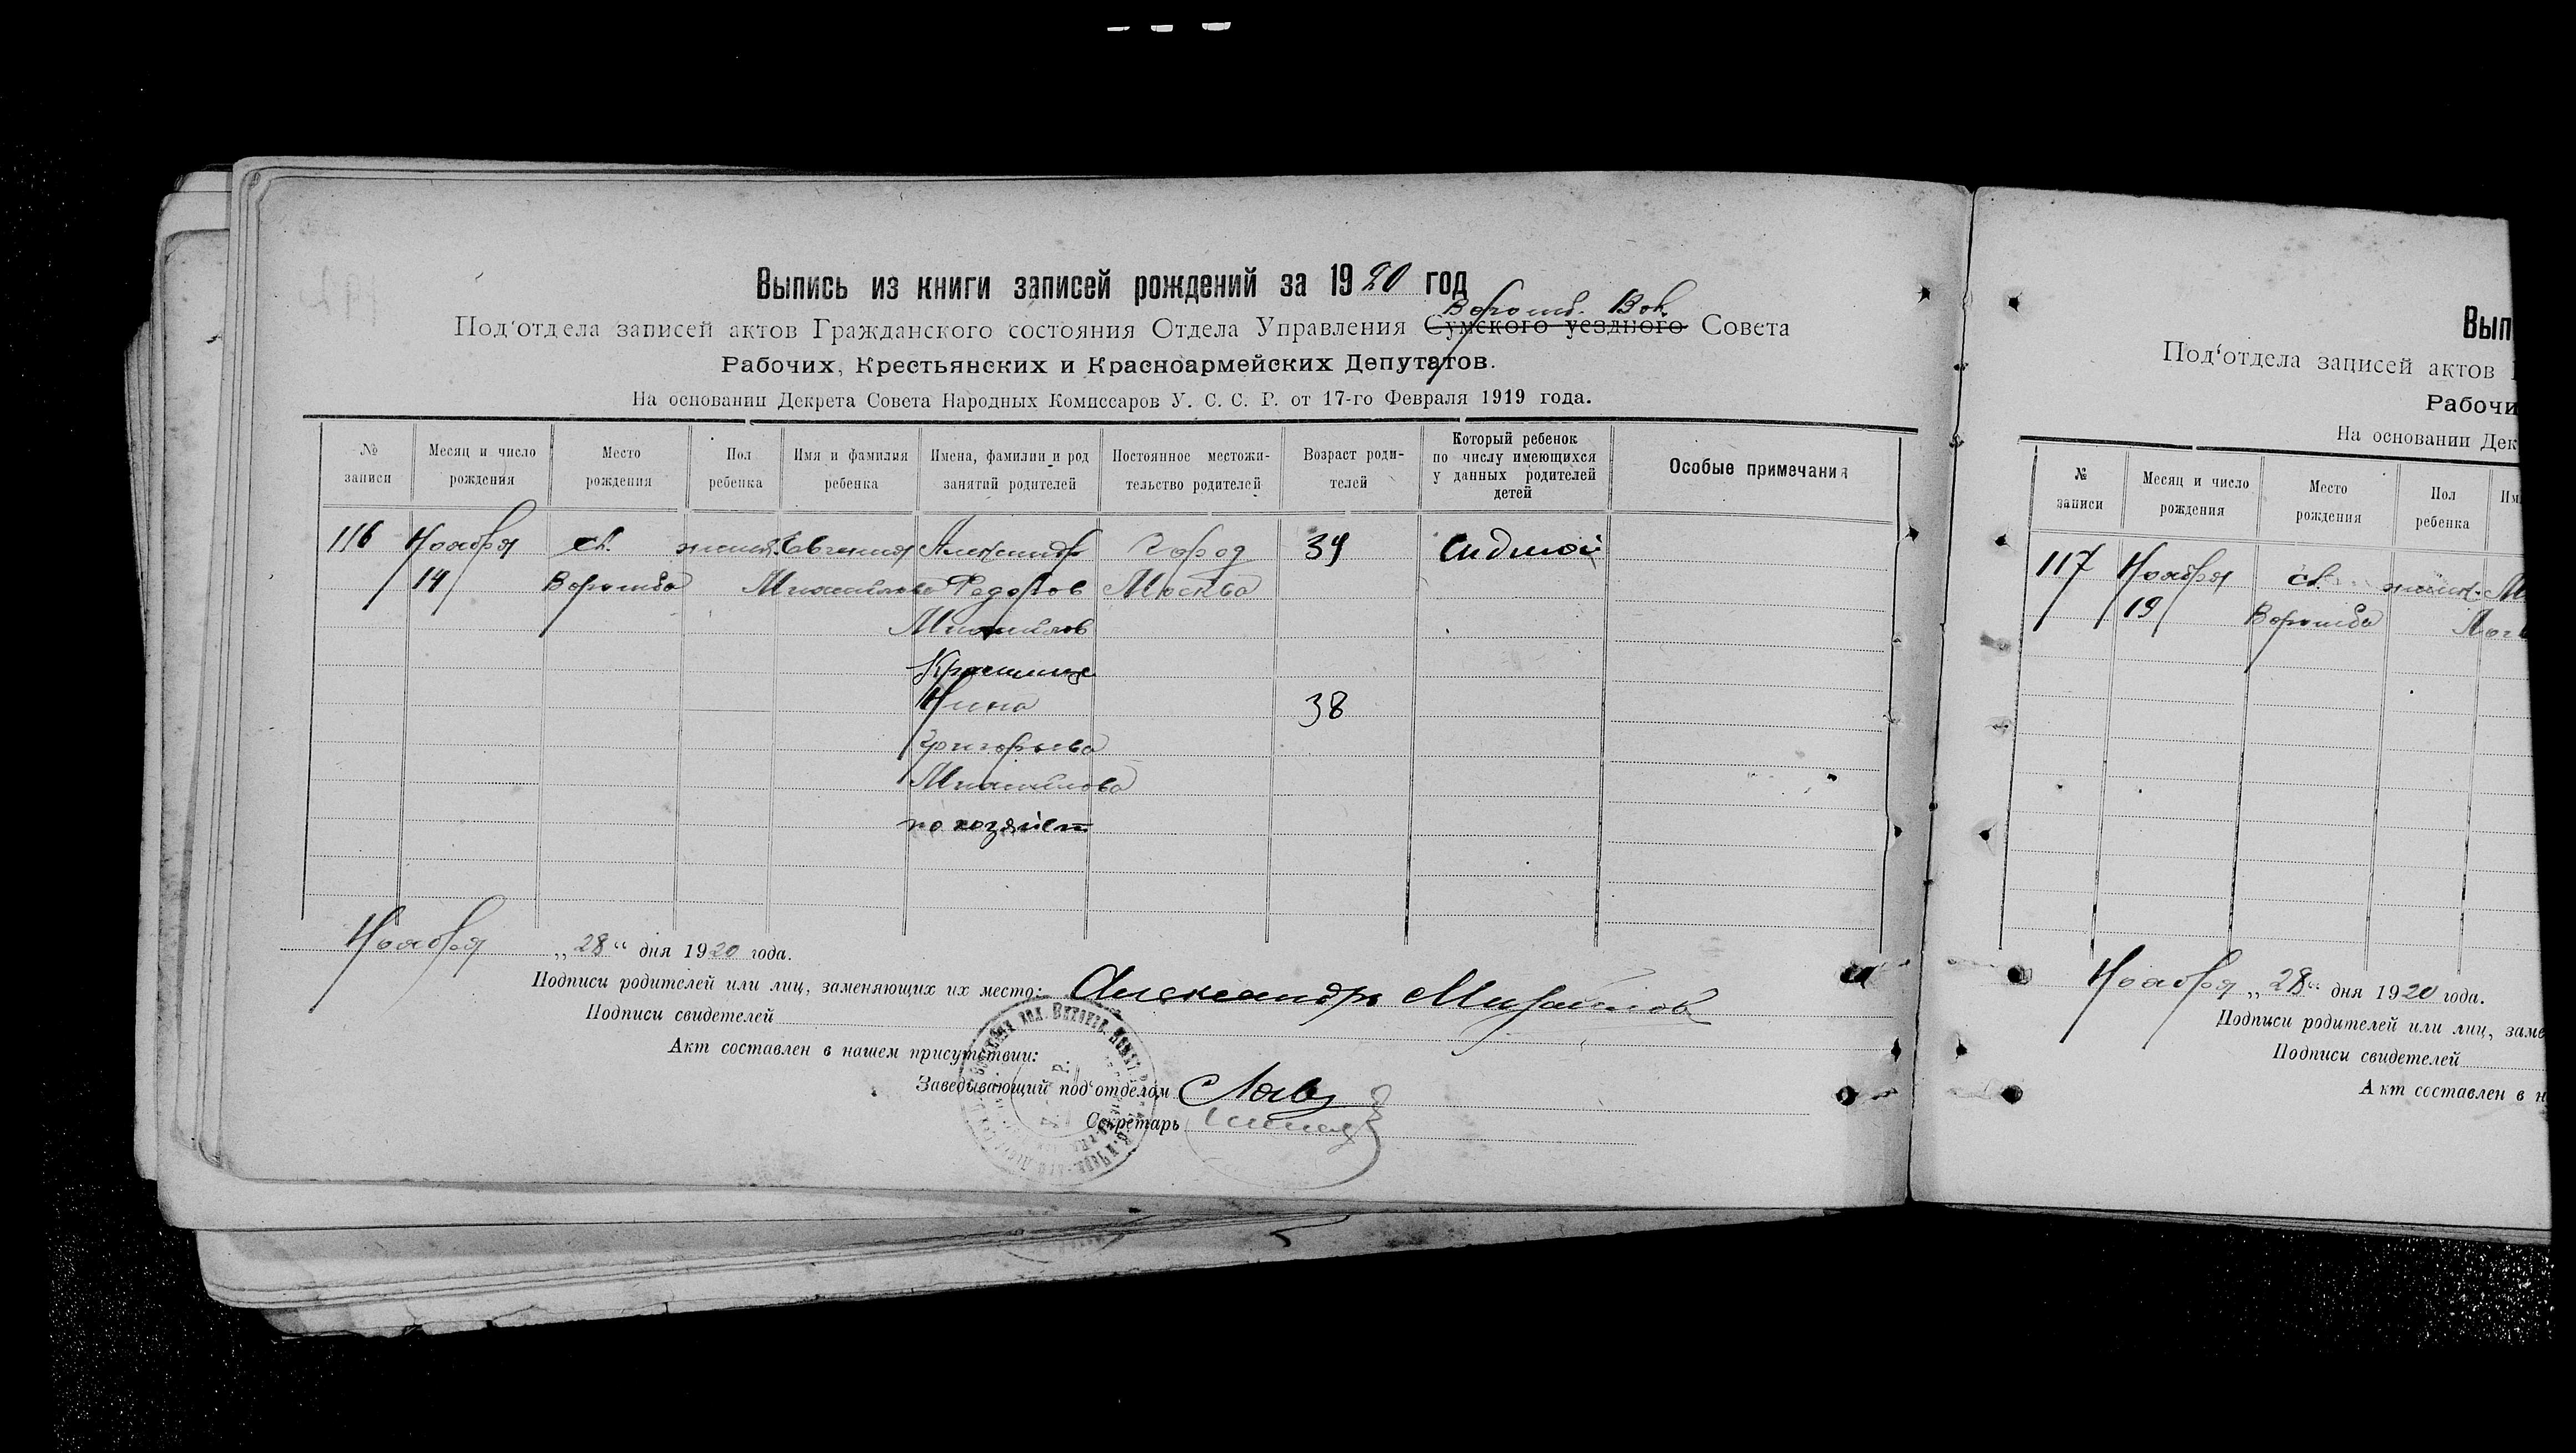 Выпись из книги записей рождений за 1920 год
Ворожб. Вол.
Под'отдела записей актов Гражданского состояния Отдела Управления Сумского уездного Совета
Рабочих, Крестьянских и Красноармейских Депутатов.
На основании Декрета Совета Народных Комиссаров У. С. С. Р. от 17-го Февраля 1919 года.
№ записи
Месяц и число рождения
Место рождения
Пол ребенка
Имя и фамилия ребенка
Имена, фамилии и род занятий родителей
Постоянное местожительство родителей
Возраст родителей
Который ребенок по числу имеющихся у данных родителей детей
Особые примечания
116 Ноября сл. женск. Евгения Александр Город 39 Сидмой
14 Ворожба Михайлова Федоров Москва
Михайлов
Нина 38
Григорьева
Михайлова
по хозяйст
Ноября „28“ дня 1920 года.
Подписи родителей или лиц, заменяющих их место: Александръ Михайлов
Подписи свидетелей
Акт составлен в нашем присутствии:
Заведывающий под'отделом
Секретарь
Вып
Под'отдела записей актов
Рабочи
На основании Дек
№ записи
Месяц и число рождения
Место рождения
Пол ребенка
Им
117 Ноября сл. женск. М
19 Ворожба
Ноября „28“ дня 1920 года.
Подписи родителей или лиц, заме
Подписи свидетелей
Акт составлен в н